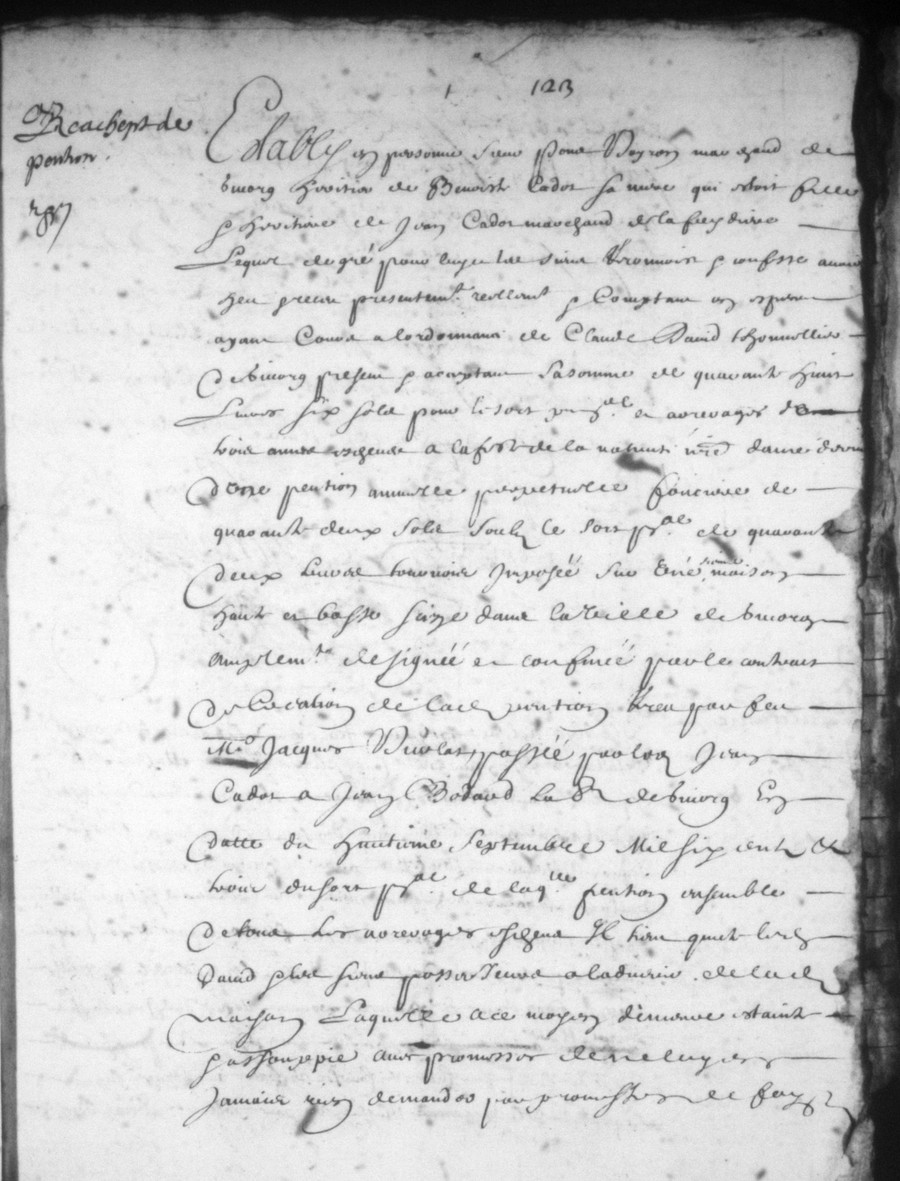 1 123
Reachept de
pention.
Estably en personne sieur Pierre Veyron marchand de
heritier de Benoiste Cador sa mere qui estoit fille
& heritiere de Jean Cador marchand de la
Lequel de gré pour luy & les siens & confesse avoir
heu & receu presentem.t reellem.t & Comptant en especes
ayant Cours a lordonnance de Claude David thonnellier
present & acceptant la somme de quarante huict
Livres six solz pour le sort p.al et arrerages de
trois annees escheues a la feste de la nativité n.re dame
d'une pention annuelle perpetuelle fonciere de
quarante deux solz soubz le sort p.al de quarante
deux livres tournois Imposéé sur une sienne maison
haute et basse size dans la ville de
amplem.t designéé et confinéé par le contract
de Creation de lad pention receu par feu
M.e Jacques passéé par led Jean
Cador a Jean en
datte du huictieme Septembre Mil six centz et
trois du sort p.al de laq.lle pention ensemble
de tous les arrerages escheus Il tient quitte led
David & les siens de lad
maison Laquelle a ce moyen demeure estainte
& assoupie avec promesses de ne luy en
jamais rien demander par promesses de foy &